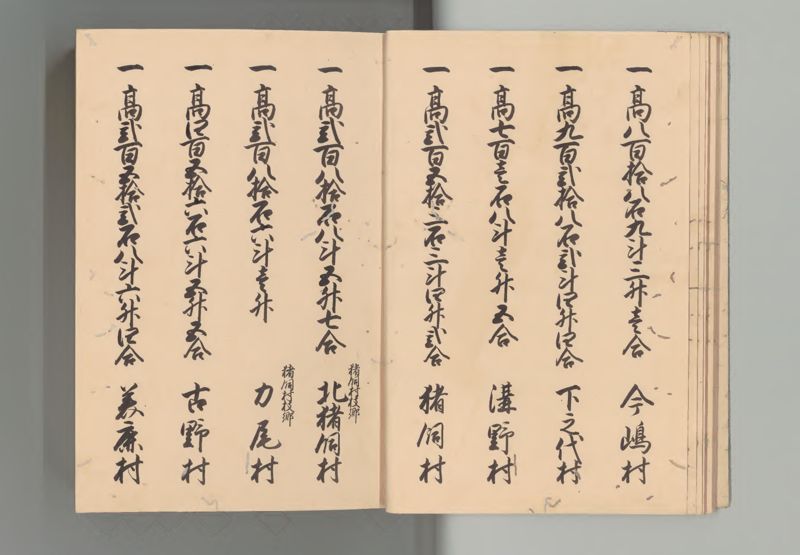 一 高八百拾八石九斗三升壱合 今嶋村
一 高九百弐拾八石弐斗四升四合 下之代村
一 高七百壱石八斗壱升五合 溝野村
一 高弐百五拾三石三斗四升弐合 猪飼村
猪飼村枝郷
一 高弐百八拾石八斗五升七合 北猪飼村
猪飼村枝郷
一 高弐百八拾石六斗壱升 力尾村
一 高四百五拾六石六斗五升五合 古野村
一 高弐百五拾弐石八斗六升四合 美鹿村